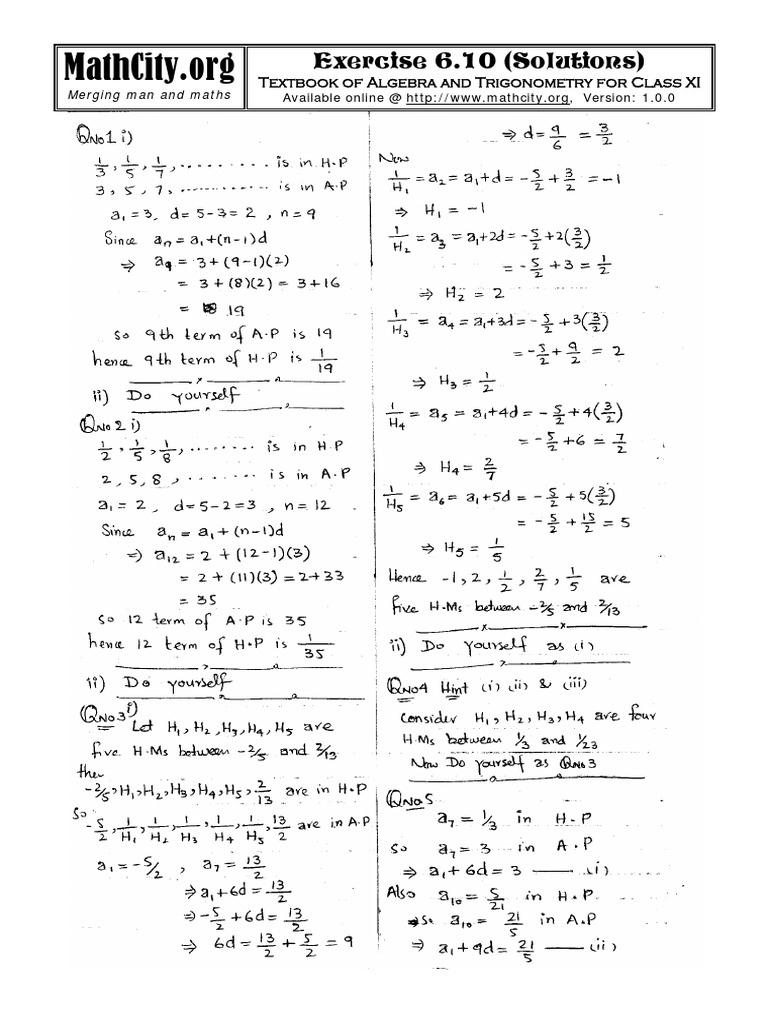 MathCity.org
Merging man and maths
Exercise 6.10 (Solutions)
Textbook of Algebra and Trigonometry for Class XI
Available online @ http://www.mathcity.org, Version: 1.0.0
QNO1 i)
1/3, 1/5, 1/7, ......... is in H.P
3, 5, 7, ............ is in A.P
a₁=3, d=5-3=2, n=9
Since aₙ=a₁+(n-1)d
⇒ a₉ = 3+(9-1)(2)
= 3+(8)(2) = 3+16
= 19
so 9th term of A.P is 19
hence 9th term of H.P is 1/19
ii) Do yourself
QNO2 i)
1/2, 1/5, 1/8, ........ is in H.P
2, 5, 8, ........ is in A.P
a₁=2, d=5-2=3, n=12
Since aₙ=a₁+(n-1)d
⇒ a₁₂=2+(12-1)(3)
=2+(11)(3)=2+33
=35
so 12 term of A.P is 35
hence 12 term of H.P is 1/35
ii) Do yourself
QNO3 i)
Let H₁, H₂, H₃, H₄, H₅ are
five H.Ms between -2/5 and 2/13
then
-2/5, H₁, H₂, H₃, H₄, H₅, 2/13 are in H.P
So
-5/2, 1/H₁, 1/H₂, 1/H₃, 1/H₄, 1/H₅, 13/2 are in A.P
a₁=-5/2, a₇=13/2
⇒ a₁+6d=13/2
⇒ -5/2+6d=13/2
⇒ 6d=13/2+5/2=9
⇒ d=9/6=3/2
Now
1/H₁=a₂=a₁+d=-5/2+3/2=-1
⇒ H₁=-1
1/H₂=a₃=a₁+2d=-5/2+2(3/2)
=-5/2+3=1/2
⇒ H₂=2
1/H₃=a₄=a₁+3d=-5/2+3(3/2)
=-5/2+9/2=2
⇒ H₃=1/2
1/H₄=a₅=a₁+4d=-5/2+4(3/2)
=-5/2+6=7/2
⇒ H₄=2/7
1/H₅=a₆=a₁+5d=-5/2+5(3/2)
=-5/2+15/2=5
⇒ H₅=1/5
Hence -1, 2, 1/2, 2/7, 1/5 are
five H.Ms between -2/5 and 2/13
ii) Do yourself as (i)
QNO4 Hint (i) (ii) & (iii)
consider H₁, H₂, H₃, H₄ are four
H.Ms between 1/3 and 1/23
Now Do yourself as QNO3
QNO5
a₇=1/3 in H.P
so a₇=3 in A.P
⇒ a₁+6d=3 ——— (i)
Also a₁₀=5/21 in H.P.
so a₁₀=21/5 in A.P
⇒ a₁+9d=21/5 ——— (ii)